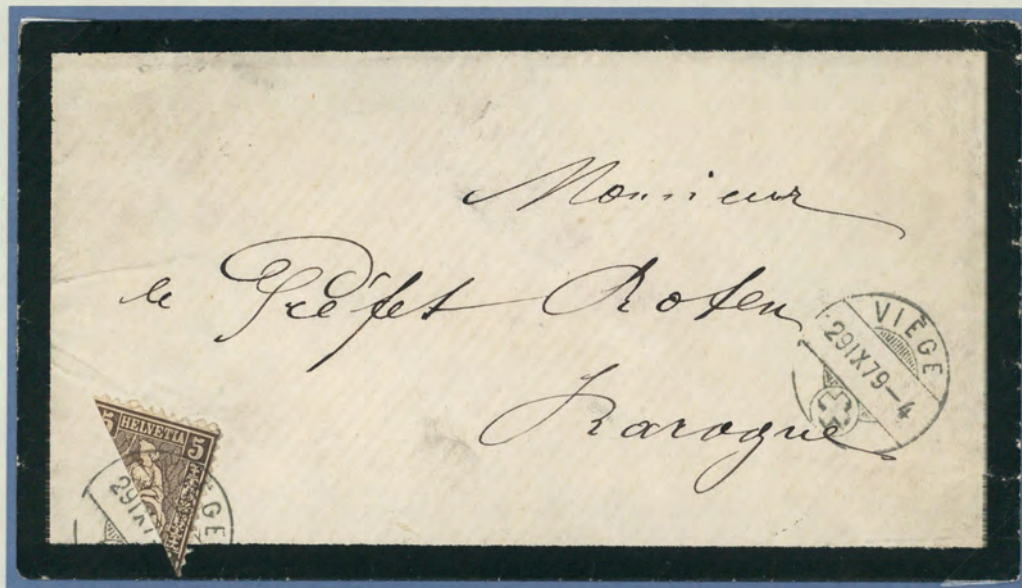 Monsieur
le Préfet Roten
Rarogne
VIÈGE
29 IX 79—4
5 HELVETIA 5
29 IX
GE